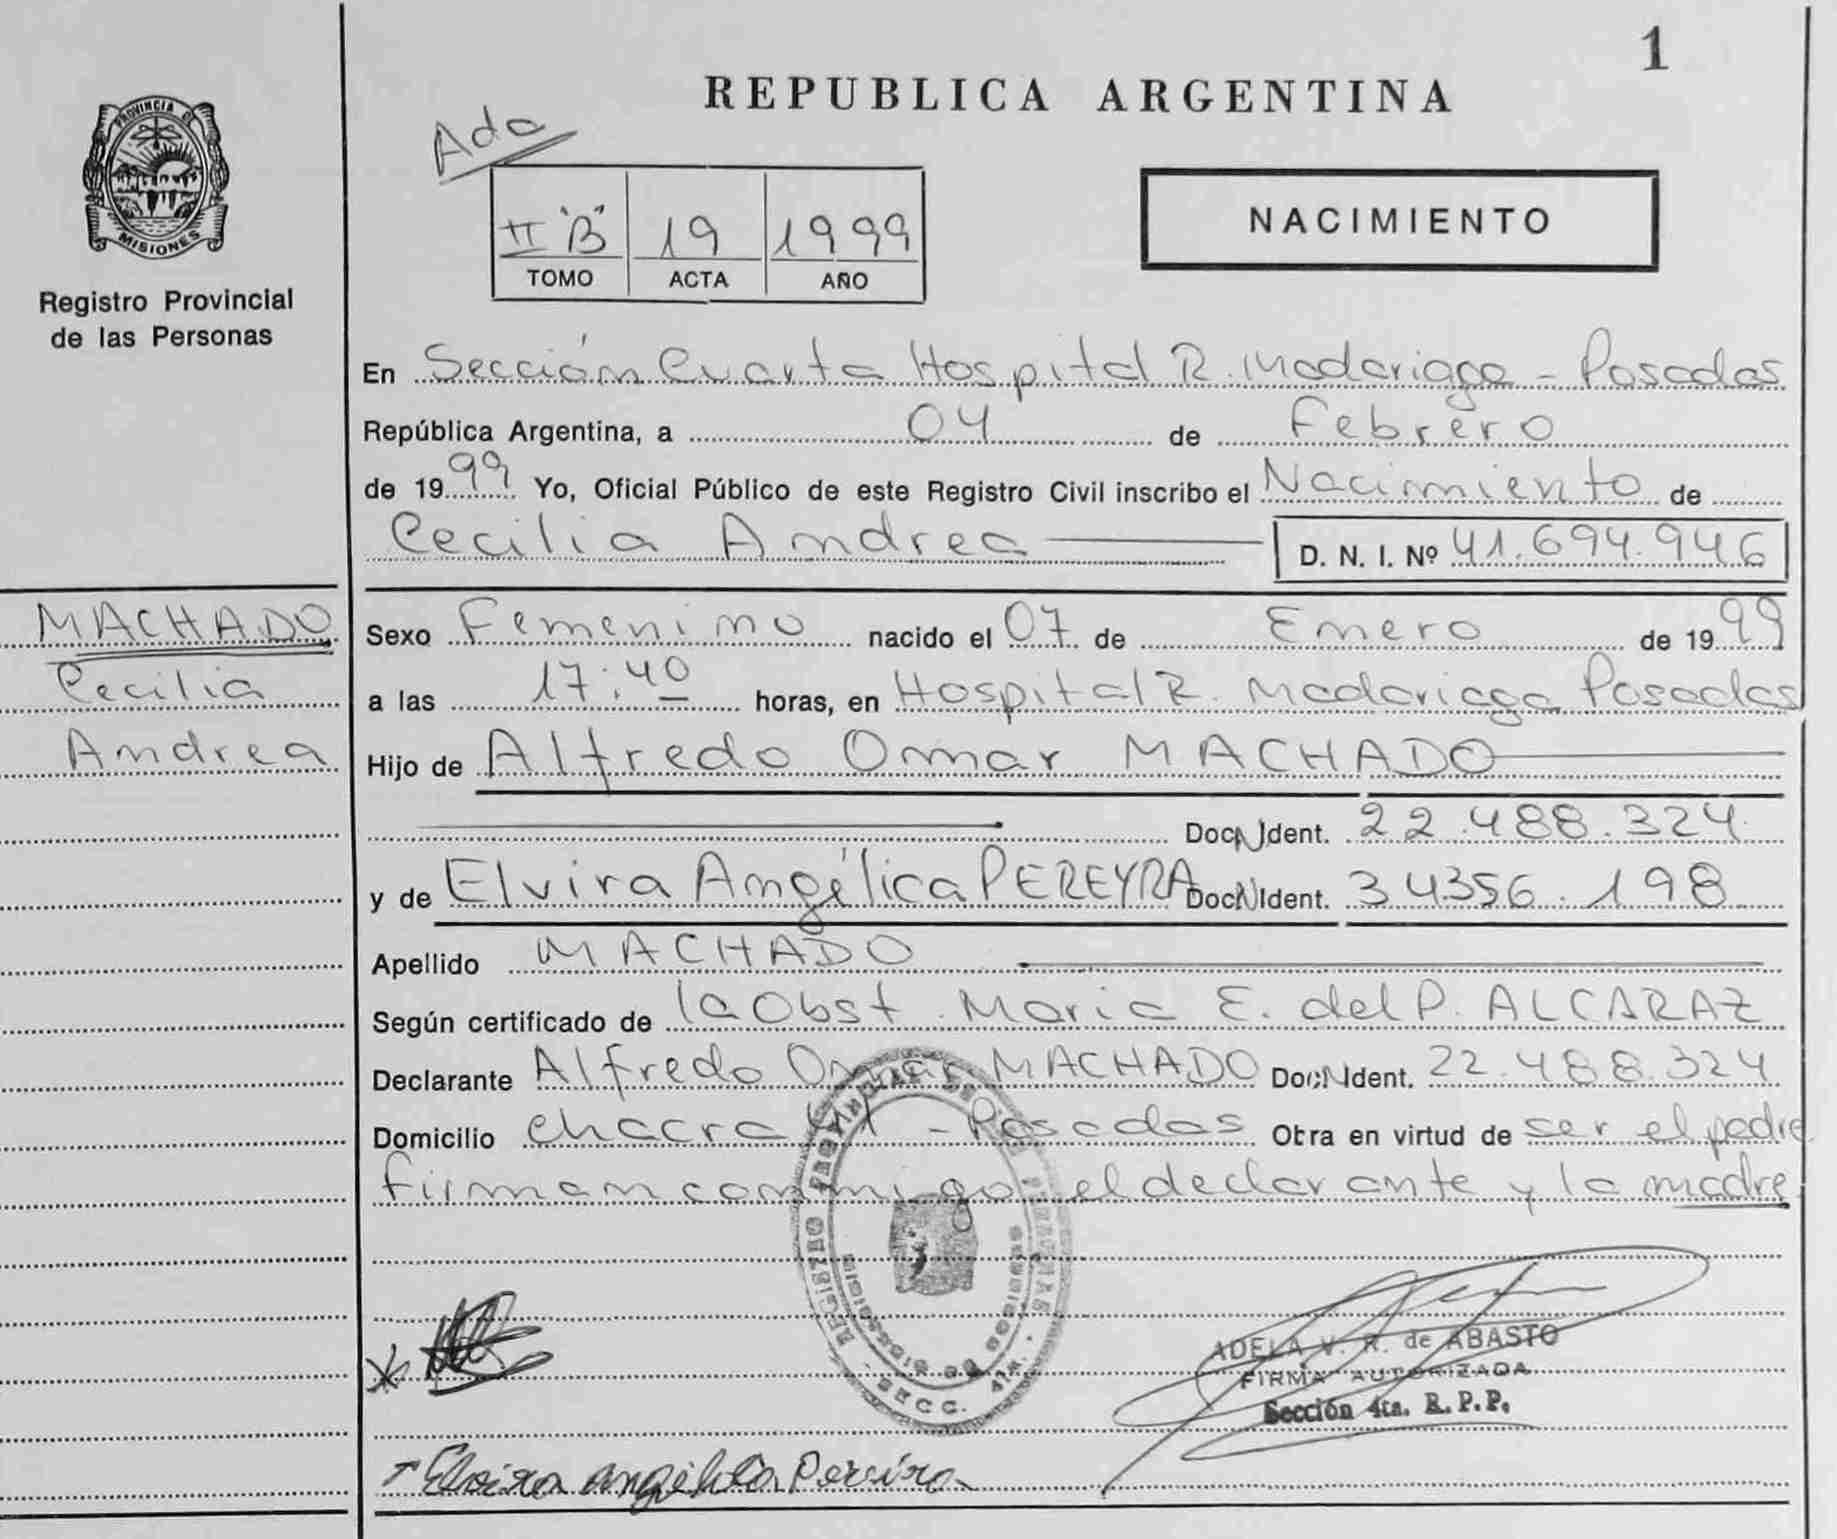 1
REPUBLICA ARGENTINA
PROVINCIA DE
MISIONES
Registro Provincial
de las Personas
Ada
II "B" 19 1999
TOMO ACTA AÑO
NACIMIENTO
En Sección Cuarta Hospital R. Madariaga - Posadas
República Argentina, a 04 de Febrero
de 1999 Yo, Oficial Público de este Registro Civil inscribo el Nacimiento de
Cecilia Andrea D. N. I. Nº 41.694.946
MACHADO
Cecilia
Andrea
Sexo Femenino nacido el 07 de Enero de 1999
a las 17:40 horas, en Hospital R. Madariaga Posadas
Hijo de Alfredo Omar MACHADO
Doc N Ident. 22.488.324
y de Elvira Angélica PEREYRA Doc N Ident. 34356.198
Apellido MACHADO
Según certificado de la Obst. Maria E. del P. ALCARAZ
Declarante Alfredo Omar MACHADO Doc N Ident. 22.488.324
Domicilio chacra - Posadas Otra en virtud de ser el padre
firman conmigo el declarante y la madre
REGISTRO PROVINCIAL DE LAS PERSONAS
SECC. 4ta.
ADELA V. R. de ABASTO
FIRMA AUTORIZADA
Sección 4ta. R. P. P.
Elvira angélica Pereira